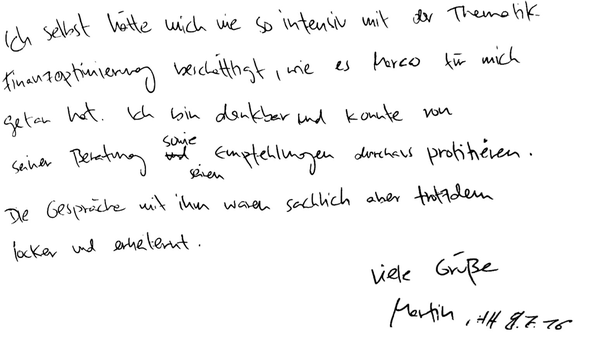 Ich selbst hätte mich nie so intensiv mit der Thematik
Finanzoptimierung beschäftigt, wie es Marco für mich
getan hat. Ich bin dankbar und konnte von
seiner Beratung sowie seinen Empfehlungen durchaus profitieren.
Die Gespräche mit ihm waren sachlich aber trotzdem
locker und erheiternt.
Viele Grüße
Martin, HH 9.7.16